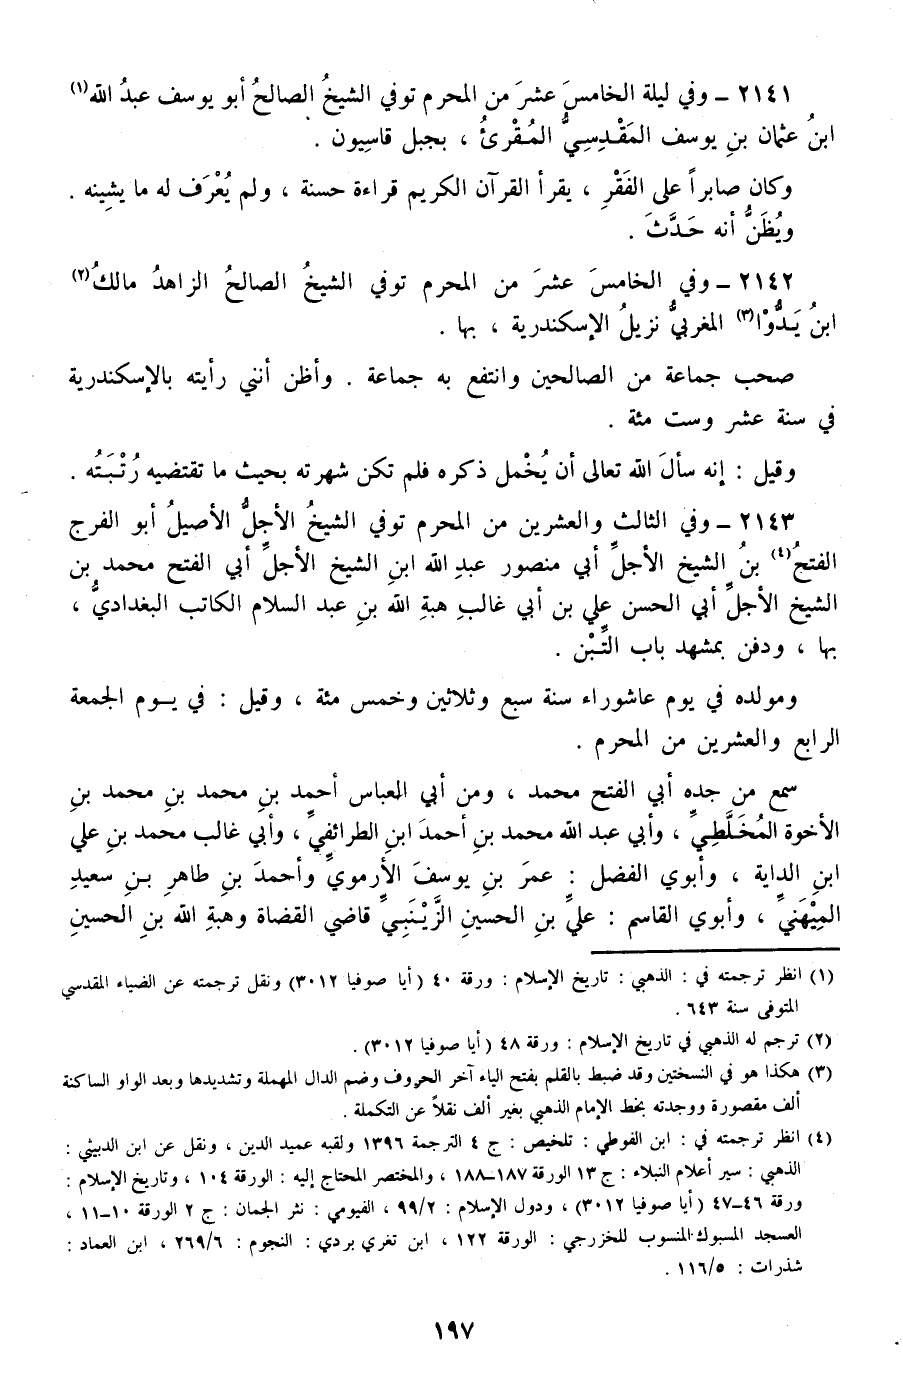 ٢١٤١ ــ وفي ليلة الخامسَ عشرَ من المحرم توفي الشيخُ الصالحُ أبو يوسف عبدُ الله(١)
ابنُ عثمان بنِ يوسف المَقْدِسِيُّ المُقْرىءُ ، بجبل قاسِيون .
وكان صابراً على الفَقْرِ ، يقرأ القرآن الكريم قراءة حسنة ، ولم يُعْرَف له ما يشِينه .
ويُظَنُّ أنه حَدَّثَ .
٢١٤٢ ــ وفي الخامسَ عشرَ من المحرم توفي الشيخُ الصالحُ الزاهدُ مالكُ(٢)
ابنُ يَدُّوْا(٣) المغربيُّ نزيلُ الإسكندرية ، بها .
صحب جماعة من الصالحين وانتفع به جماعة . وأظن أنني رأيته بالإسكندرية
في سنة عشر وست مئة .
وقيل : إنه سألَ الله تعالى أن يُخْمل ذكره فلم تكن شهرته بحيث ما تقتضيه رُتْبَتُه .
٢١٤٣ ــ وفي الثالثِ والعشرين من المحرم توفي الشيخُ الأجلُّ الأصيلُ أبو الفرج
الفتحُ(٤) بنُ الشيخ الأجلِّ أبي منصور عبدِ الله ابنِ الشيخ الأجلِّ أبي الفتح محمد بن
الشيخ الأجلِّ أبي الحسن علي بن أبي غالبِ هبةِ الله بنِ عبد السلام الكاتب البغداديُّ ،
بها ، ودفن بمشهد باب التِّبْن .
ومولده في يوم عاشوراء سنة سبع وثلاثين وخمس مئة ، وقيل : في يوم الجمعة
الرابع والعشرين من المحرم .
سمع من جده أبي الفتح محمد ، ومن أبي العباس أحمد بنِ محمد بنِ محمد بنِ
الأخوة المُخَلَّطِيِّ ، وأبي عبد الله محمد بن أحمدَ ابنِ الطرائفيِّ ، وأبي غالب محمد بنِ علي
ابنِ الداية ، وأبوي الفضل : عمرَ بنِ يوسفَ الأرمويِّ وأحمدَ بنِ طاهرِ بنِ سعيدِ
المِيْهَنيِّ ، وأبوي القاسم : عليِّ بنِ الحسينِ الزَّيْنَبِيِّ قاضي القضاة وهبةِ الله بنِ الحسينِ
(١) انظر ترجمته في : الذهبي : تاريخ الإسلام : ورقة ٤٠ (أيا صوفيا ٣٠١٢) ونقل ترجمته عن الضياء المقدسي
المتوفى سنة ٦٤٣ .
(٢) ترجم له الذهبي في تاريخ الإسلام : ورقة ٤٨ (أيا صوفيا ٣٠١٢) .
(٣) هكذا هو في النسختين وقد ضبط بالقلم بفتح الياء آخر الحروف وضم الدال المهملة وتشديدها وبعد الواو الساكنة
ألف مقصورة ووجدته بخط الإمام الذهبي بغير ألف نقلاً عن التكملة .
(٤) انظر ترجمته في : ابن الفوطي : تلخيص : ج ٤ الترجمة ١٣٩٦ ولقبه عميد الدين ، ونقل عن ابن الدبيثي :
الذهبي : سير أعلام النبلاء : ج ١٣ الورقة ١٨٧ــ١٨٨ ، والمختصر المحتاج إليه : الورقة ١٠٤ ، وتاريخ الإسلام :
ورقة ٤٦ــ٤٧ (أيا صوفيا ٣٠١٢) ، ودول الإسلام : ٩٩/٢ ، الفيومي : نثر الجمان : ج ٢ الورقة ١٠ــ١١ ،
العسجد المسبوك المنسوب للخزرجي : الورقة ١٢٢ ، ابن تغري بردي : النجوم : ٢٦٩/٦ ، ابن العماد :
شذرات : ١١٦/٥ .
١٩٧